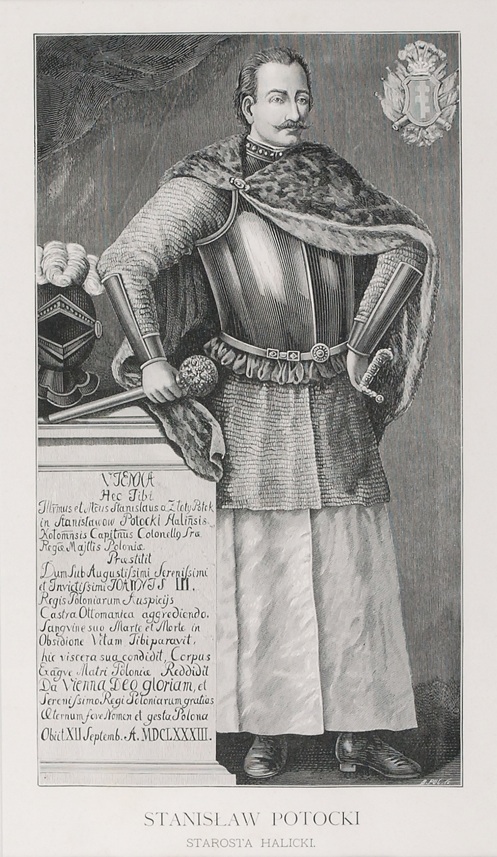 VIENNA
Hec Tibi
Illmus et Mcus Stanislaus a Złoty Potok
in Stanisławow Potocki Haliñsis
Kołomñsis Capitnus Colonellg Sræ
Regiæ Majttis Poloniæ
Præstitit
Dum Sub Augustissimi Serenissimi
et Invictissimi IOANNIS III.
Regis Poloniarum Auspicijs
Castra Ottomanica aggrediendo.
Sangvine suo Marte et Morte in
Obsidione Vitam Tibi paravit.
hic viscera sua condidit, Corpus
Exãgve Matri Poloniæ Reddidit
Da Vienna Deo gloriam, et
Serenissimo Regi Poloniarum gratias
Æternum fove Nomen et gesta Polona
Obiit XII Septemb. A. MDCLXXXIII.
STANISŁAW POTOCKI
STAROSTA HALICKI.